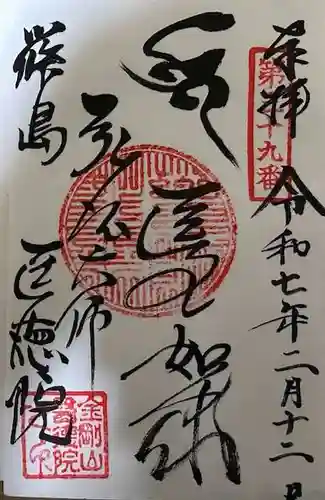 奉拝
第三十九番
令和七年二月十二日
如来
弘法大師
篠島
医徳院
金剛山
醫徳院